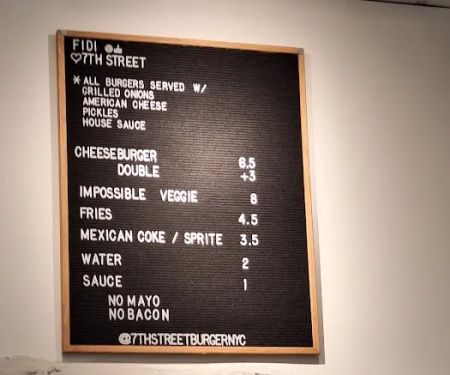 FIDI
♡7TH STREET
*ALL BURGERS SERVED W/
GRILLED ONIONS
AMERICAN CHEESE
PICKLES
HOUSE SAUCE
CHEESEBURGER 6.5
DOUBLE +3
IMPOSSIBLE VEGGIE 8
FRIES 4.5
MEXICAN COKE / SPRITE 3.5
WATER 2
SAUCE 1
NO MAYO
NO BACON
@7THSTREETBURGERNYC